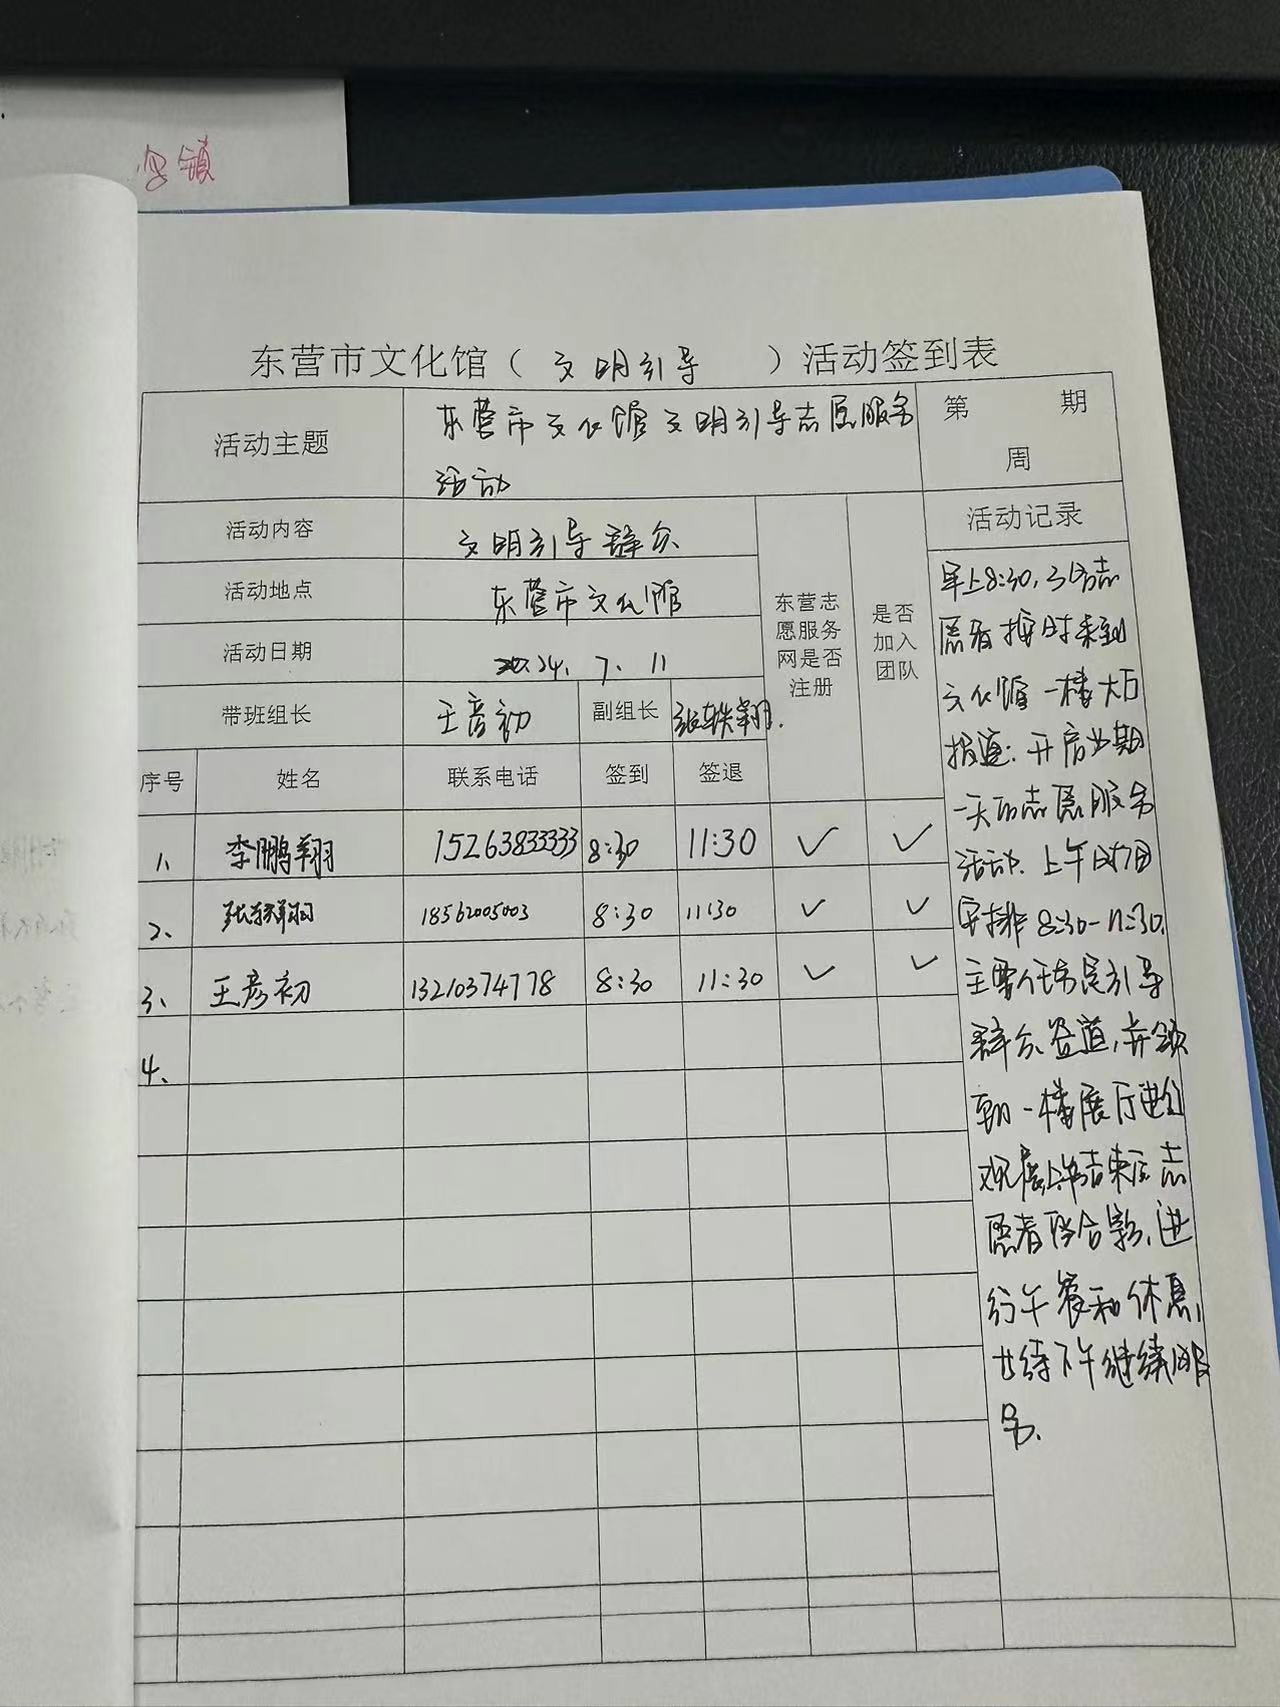 东营市文化馆（文明引导）活动签到表
活动主题 东营市文化馆文明引导志愿服务
活动
第 期
周
活动内容 文明引导群众
活动地点 东营市文化馆
活动日期 2024.7.11
带班组长 王彦初 副组长 张轶翔.
东营志
愿服务
网是否
注册
是否
加入
团队
序号 姓名 联系电话 签到 签退
1、 李鹏翔 15263833333 8:30 11:30 ✓ ✓
2、 张轶翔 18562005003 8:30 11:30 ✓ ✓
3、 王彦初 13210374778 8:30 11:30 ✓ ✓
4、
活动记录
早上8:30,3名志
愿者按时来到
文化馆一楼大厅
报道:开启为期
一天的志愿服务
活动.上午时间
安排8:30-11:30.
主要任务是引导
群众签道,并领
到一楼展厅进行
观展上午结束后志
愿者 合影,进
行午餐和休息,
等待下午继续服
务.